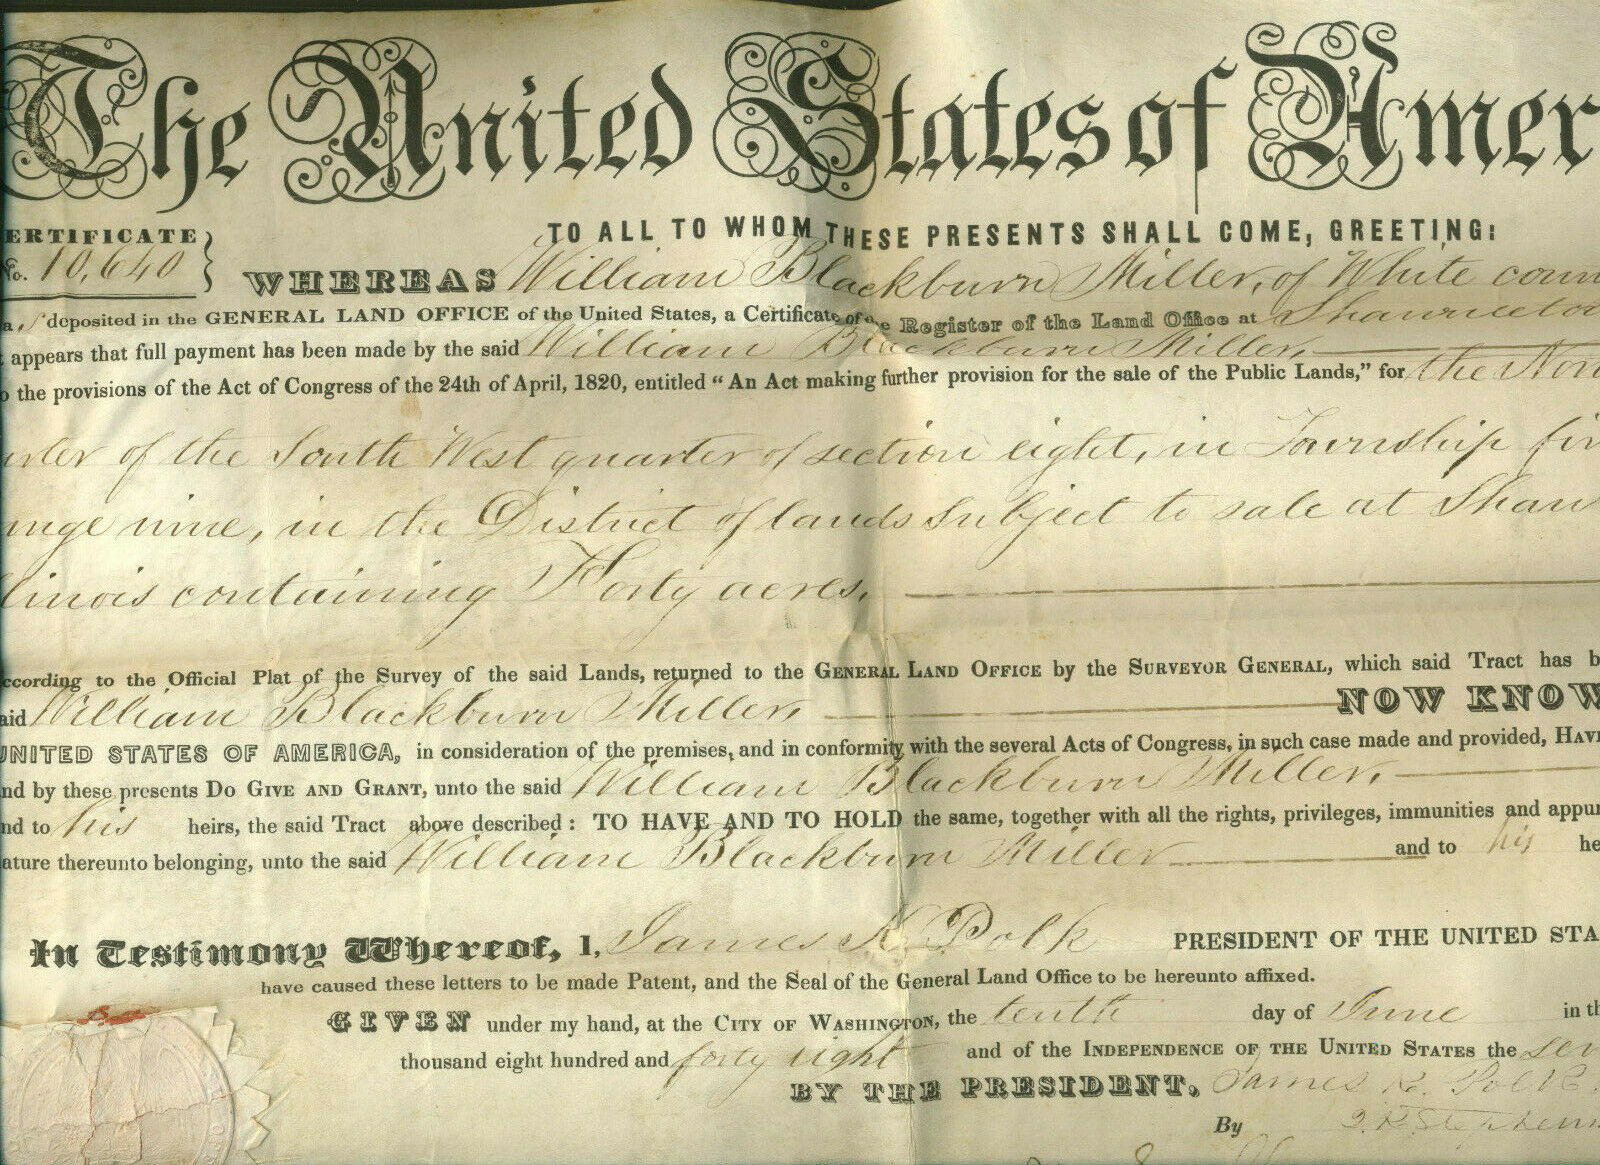 The United States of Amer
ERTIFICATE
No. 10,640
TO ALL TO WHOM THESE PRESENTS SHALL COME, GREETING:
WHEREAS William Blackburn Miller, of White coun
deposited in the GENERAL LAND OFFICE of the United States, a Certificate of the Register of the Land Office at Shawneeto
t appears that full payment has been made by the said William Blackburn Miller,
o the provisions of the Act of Congress of the 24th of April, 1820, entitled "An Act making further provision for the sale of the Public Lands," for the Nor
rter of the South West quarter of section eight, in Township fiv
ange nine, in the District of lands subject to sale at Shaw
linois containing Forty acres,
ccording to the Official Plat of the Survey of the said Lands, returned to the GENERAL LAND OFFICE by the SURVEYOR GENERAL, which said Tract has b
aid William Blackburn Miller, NOW KNOW
UNITED STATES OF AMERICA, in consideration of the premises, and in conformity with the several Acts of Congress, in such case made and provided, HAV
nd by these presents DO GIVE AND GRANT, unto the said William Blackburn Miller,
nd to his heirs, the said Tract above described: TO HAVE AND TO HOLD the same, together with all the rights, privileges, immunities and appur
ature thereunto belonging, unto the said William Blackburn Miller and to his he
In Testimony Whereof, I, James K. Polk PRESIDENT OF THE UNITED STA
have caused these letters to be made Patent, and the Seal of the General Land Office to be hereunto affixed.
GIVEN under my hand, at the CITY OF WASHINGTON, the tenth day of June in th
thousand eight hundred and forty eight and of the INDEPENDENCE OF THE UNITED STATES the sev
BY THE PRESIDENT, James K. Polk
By